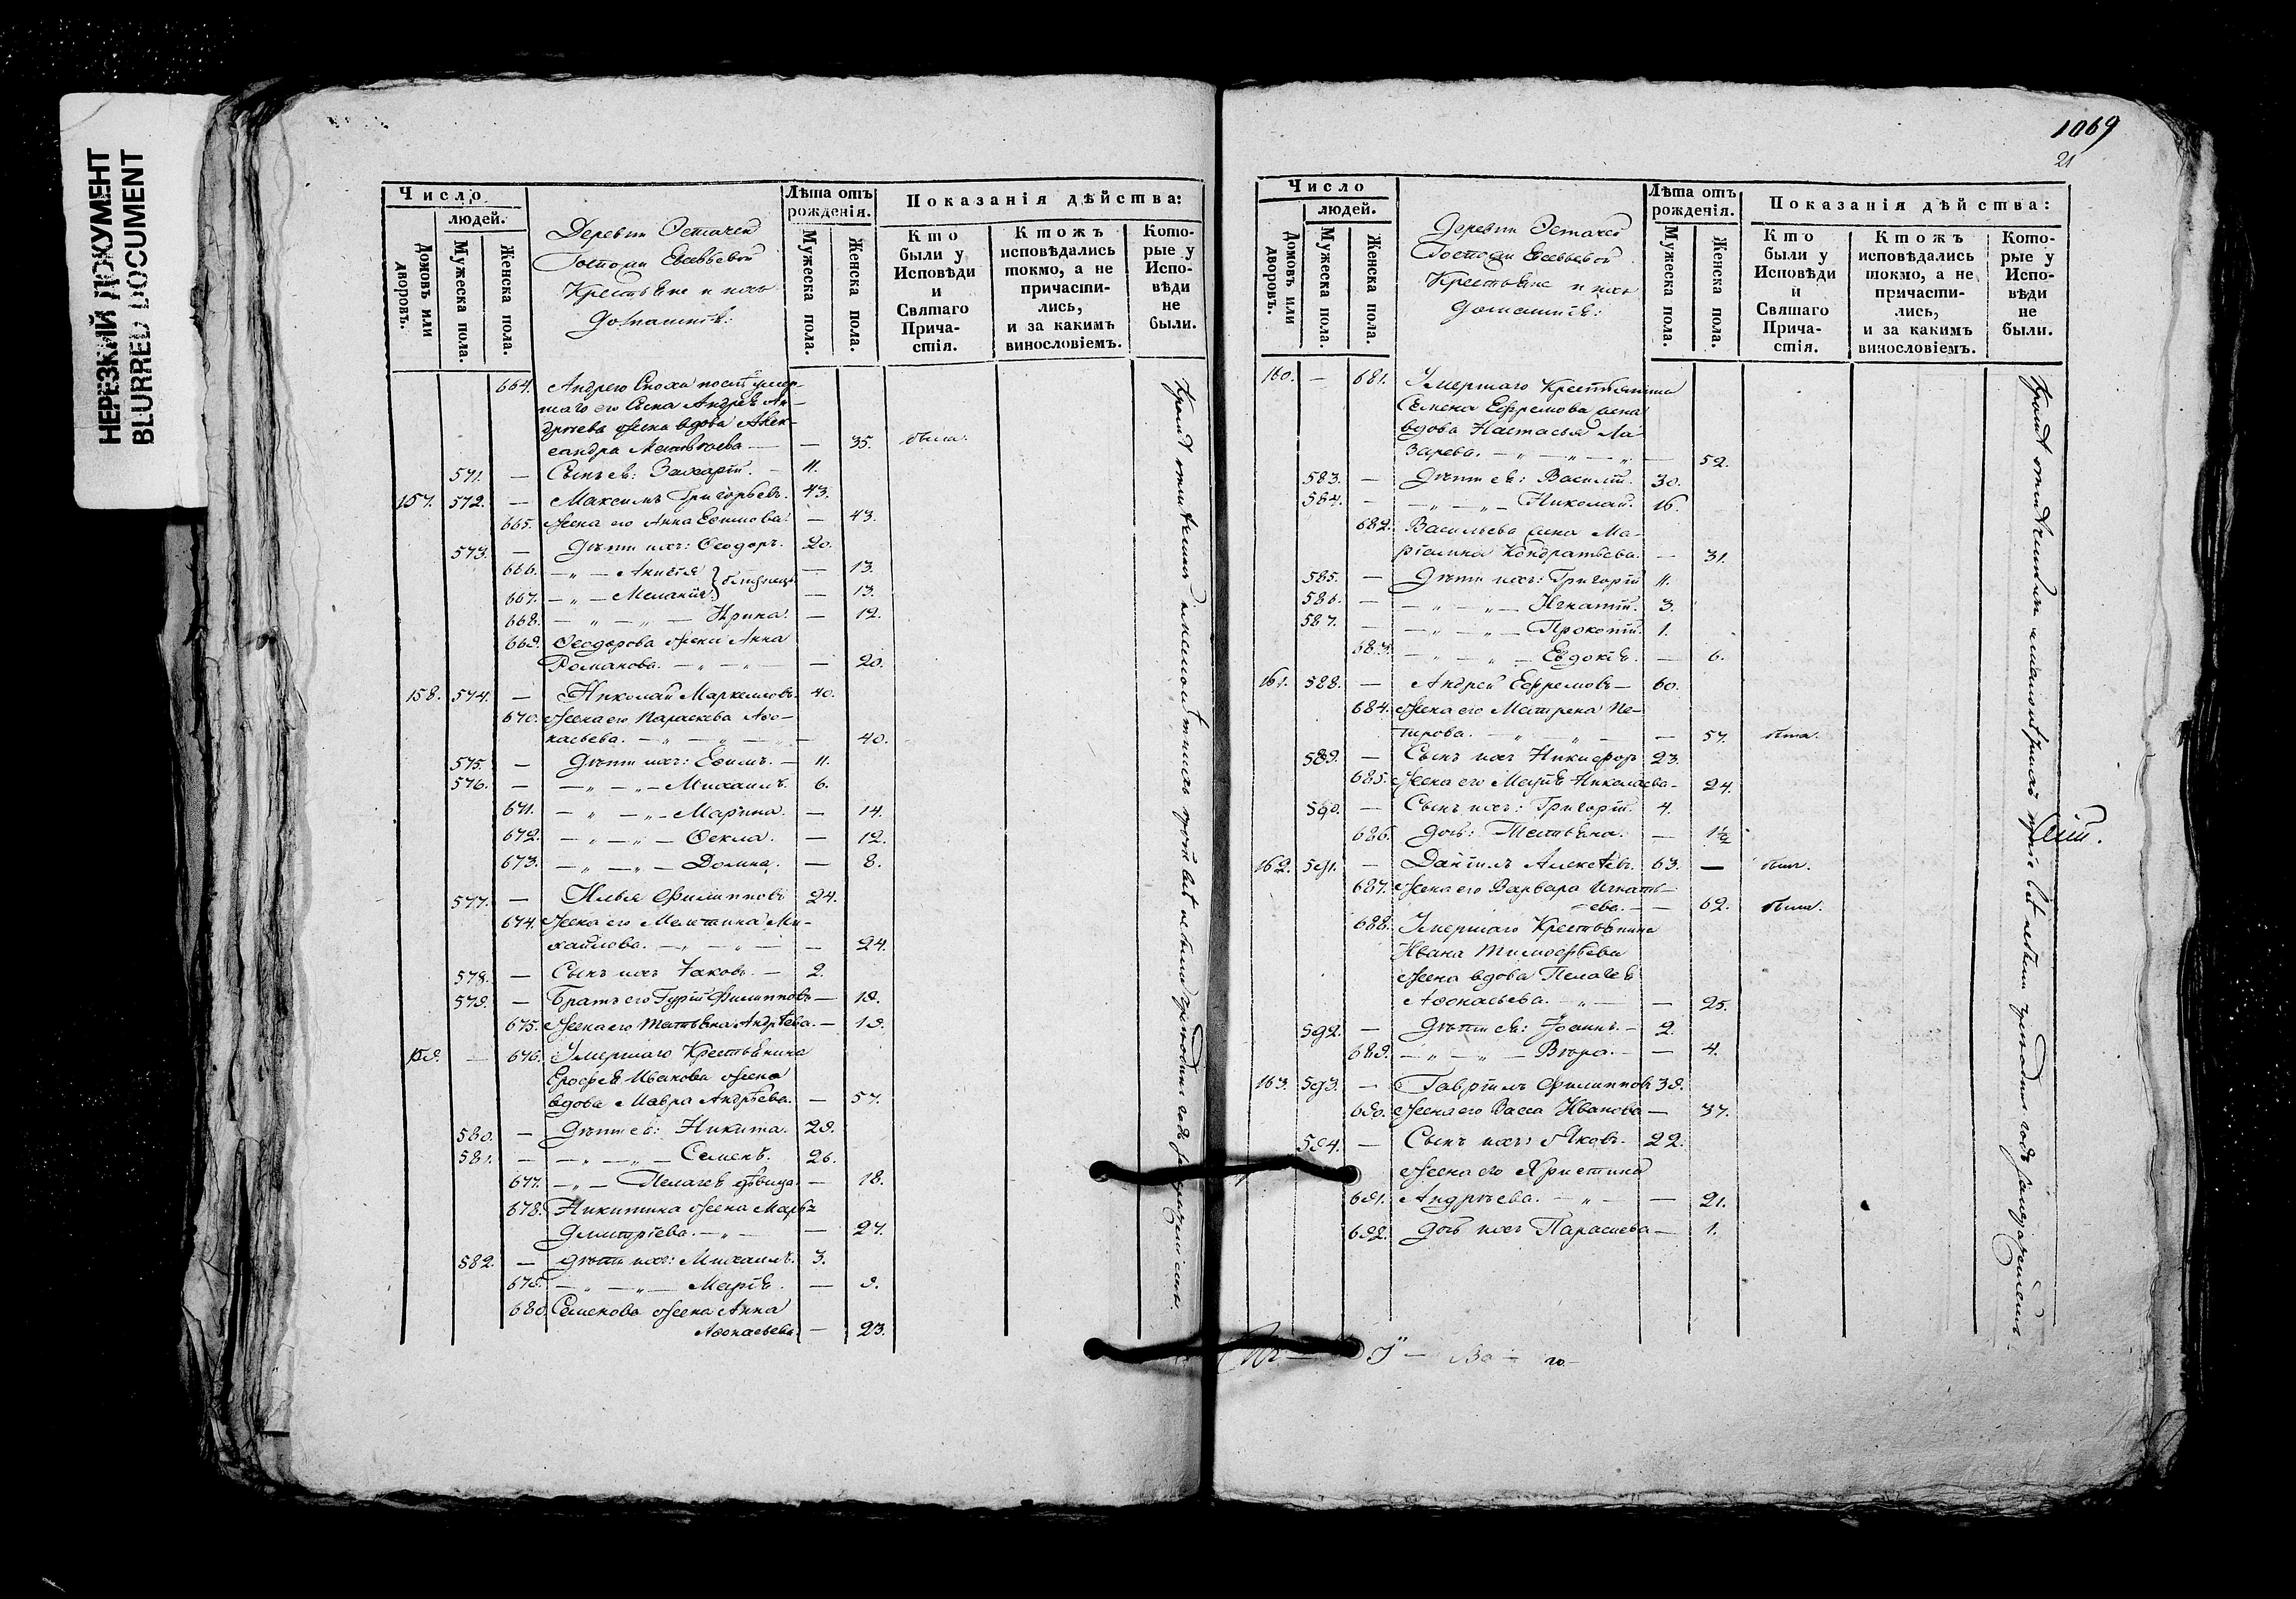 НЕРЕЗКИЙ ДОКУМЕНТ
BLURRED DOCUMENT
Число
людей.
Домовъ или дворовъ.
Мужеска пола.
Женска пола.
Деревни
Госпожи
Крестьяне и ихъ
домашніе:
Лѣта отъ рожденія.
Мужеска пола.
Женска пола.
Показанія дѣйства:
Кто были у Исповѣди и Святаго Причастія.
Ктожъ исповѣдались токмо, а не причастились, и за какимъ винословіемъ.
Которые у Исповѣди не были.
664. Андрею Сноха послѣ умер-
шаго его сына Андрея Ан-
дреева жена вдова Алек-
сандра Матвѣева — — 35. была.
571. — Сынъ ея: Захарій. — 11.
157. 572. — Максимъ Григорьевъ. 43.
665. Жена его Анна Еѳимова. — 43.
573. — Дѣти ихъ: Ѳеодоръ. 20.
666. — „ — Анисія — 13.
667. — „ — Меланія — 13.
668. — „ — „ — Ирина. — 12.
669. Ѳеодорова жена Анна
Романова. — „ — „ — — 20.
158. 574. — Николай Маркеловъ 40.
670. Жена его Параскева Аѳо-
насьева. — „ — „ — „ — 40.
575. — Дѣти ихъ: Еѳимъ. — 11.
576. — — „ — „ — Михаилъ. 6.
671. — „ — „ — Марина. — 14.
672. — „ — „ — Ѳекла. — 12.
673. — „ — „ — Домна. — 8.
577. — Илья Филипповъ 24.
674. Жена его Ми-
хайлова. — „ — „ — — 24.
578. — Сынъ ихъ Іаковъ. — 2.
579. — Братъ его Гурій Филипповъ — 19.
675. Жена его Татьяна Андреева. — 19.
159. — 676. Умершаго Крестьянина
Ерофея Иванова жена
вдова Мавра Андреева. — 57.
580. — Дѣти ея: Никита. 29.
581. — — „ — „ — Семенъ. 26.
677. — „ — Пелагея дѣвица — 18.
678. Никитина жена Марья
Дмитріева. — „ — — 27.
582. — Дѣти ихъ: Михаилъ. 3.
679. — „ — „ — Марія. — 9.
680. Семенова жена Анна
Аѳонасьева. — 23.
1069
21
Число
людей.
Домовъ или дворовъ.
Мужеска пола.
Женска пола.
Деревни
Госпожи
Крестьяне и ихъ
домашніе:
Лѣта отъ рожденія.
Мужеска пола.
Женска пола.
Показанія дѣйства:
Кто были у Исповѣди и Святаго Причастія.
Ктожъ исповѣдались токмо, а не причастились, и за какимъ винословіемъ.
Которые у Исповѣди не были.
160. — 681. Умершаго Крестьянина
Семена Ефремова жена
вдова Настасья Ла-
зарева. — „ — „ — „ — 52.
583. — Дѣти ея: Василій. 30.
584. — — „ — „ — Николай. 16.
682. Васильева жена Ма-
Кондратьева. — 31.
585. — Дѣти ихъ: Григорій 11.
586. — — „ — „ — Игнатій. 3.
587. — — „ — „ — Прокопій. 1.
683. — „ — „ — Евдокія. — 6.
161. 588. — Андрей Ефремовъ — 60.
684. Жена его Матрена Пе-
трова. — „ — „ — — 57. была.
589. — Сынъ ихъ Никифоръ 23.
685. Жена его Марія Николаева — 24.
590. — Сынъ ихъ: Григорій. 4.
686. Дочь: Татьяна. — 1½
162. 591. — Даніилъ Алексѣевъ. 63. — былъ.
687. Жена его Варвара Игнать-
ева. — — 62. была.
688. Умершаго Крестьянина
Ивана Тимофѣева
жена вдова Пелагея
Аѳонасьева. — „ — — 25.
592. — Дѣти ея: Іоаннъ. — 2.
689. — „ — „ — Вѣра. — — 4.
163. 593. — Гавріилъ Филипповъ 39.
690. Жена его Васса Иванова — 37.
594. — Сынъ ихъ: Яковъ. 22.
Жена его Христина
691. Андреева. — „ — — 21.
692. Дочь ихъ Параскева — 1.